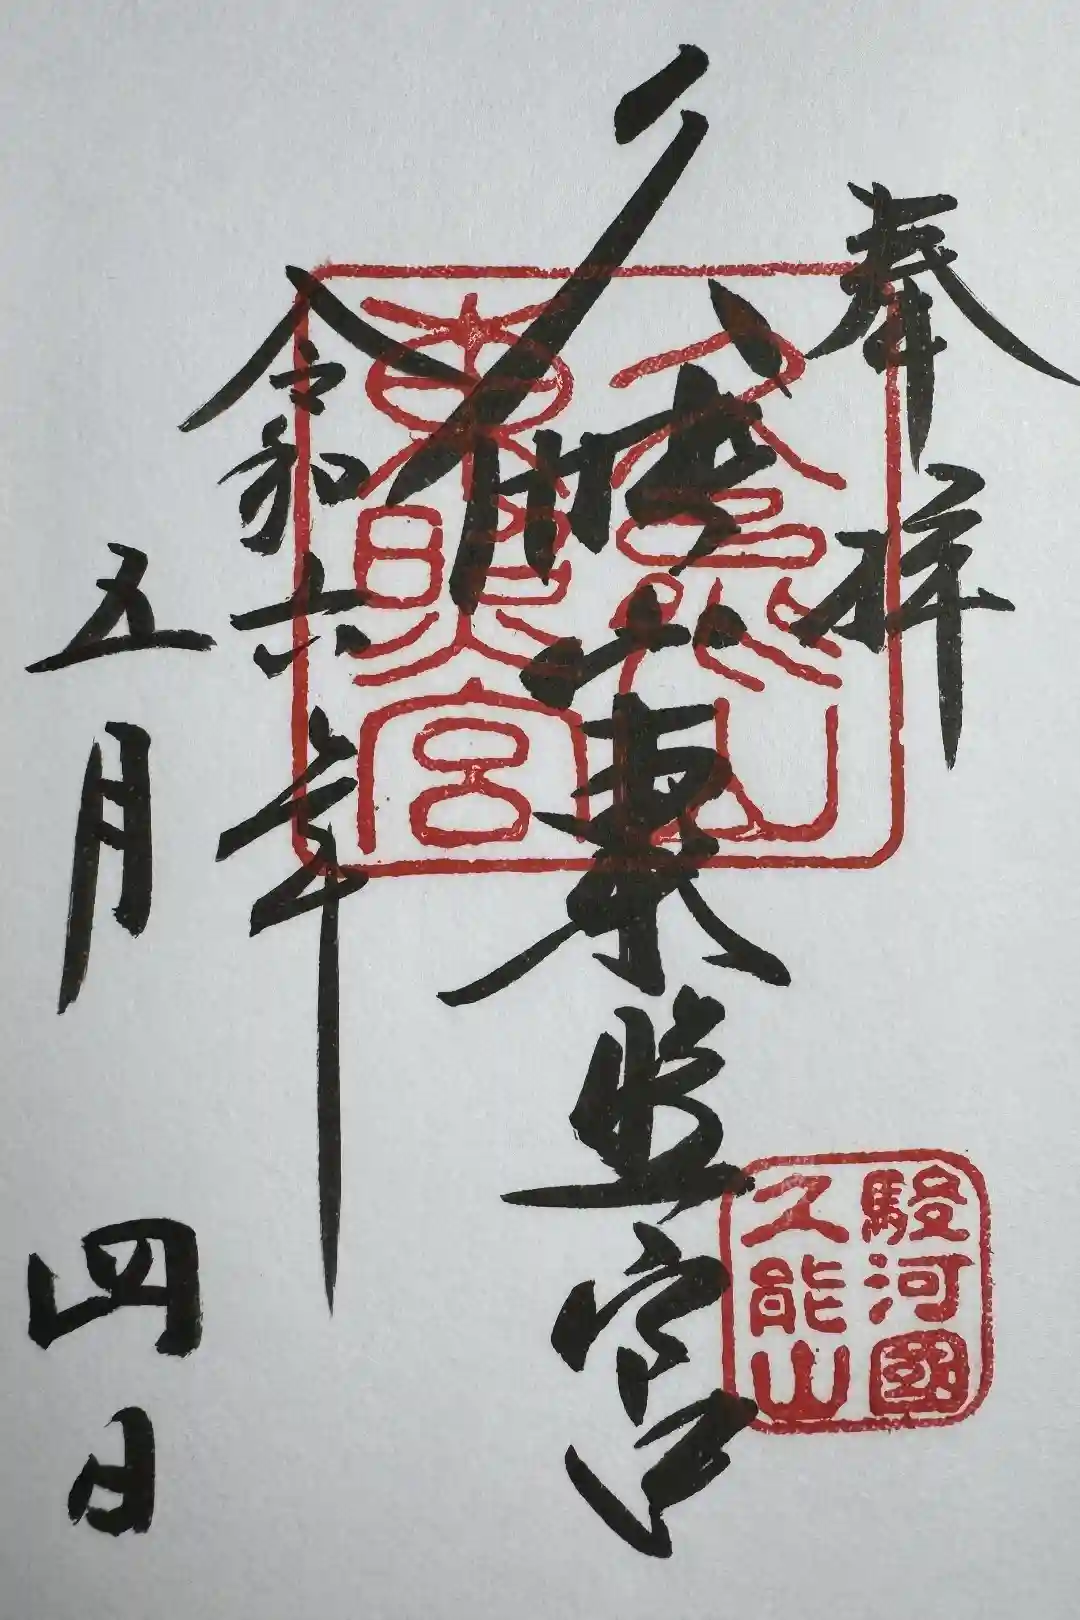 奉拝
久能山東照宮
令和六年
五月四日
久能山
東照宮
駿河國
久能山